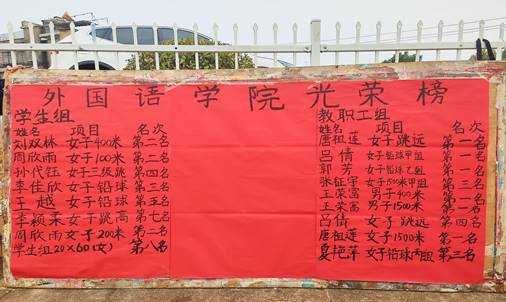 外国语学院光荣榜
学生组
姓名 项目 名次
刘双林 女子400米 第二名
周欣雨 女子100米 第二名
孙代钰 女子三级跳 第四名
李佳欣 女子铅球 第三名
于越 女子铅球 第五名
李颖采 女子跳高 第七名
周欣雨 女子200米 第二名
学生组20×60(女) 第八名
教职工组
姓名 项目 名次
唐祖莲 女子跳远 第一名
吕倩 女子铅球甲组 第一名
郭芳 女子铅球乙组 第一名
张征宇 女子1500米甲组 第三名
王荣富 男子400米 第一名
王荣富 男子1500米 第一名
吕倩 女子跳远 第四名
唐祖莲 女子1500米 第一名
夏艳萍 女子铅球丙组 第三名